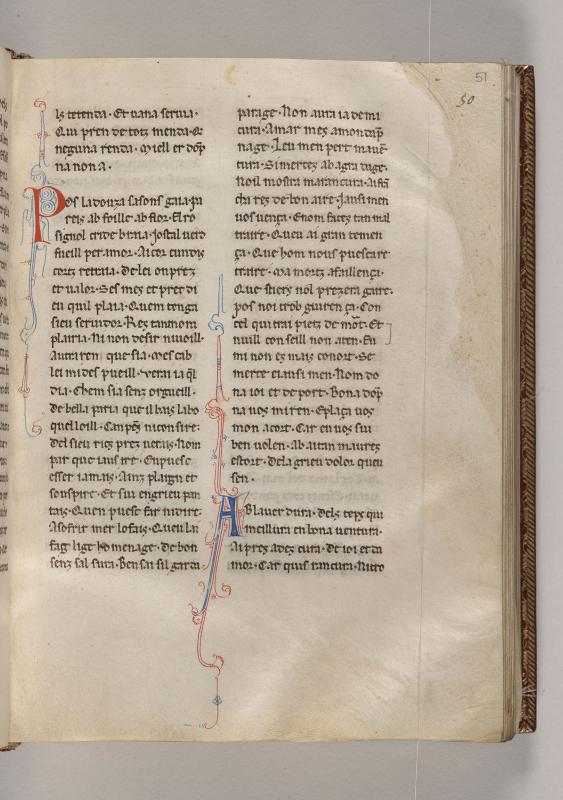 51
50
ls tenenda · Et uana serua ·
Qui pren de totz menda · Q̃
neguna renda · Miell er dop̃
na non a ·
Pos la douza sasons gaia · Ju
reis ab foille ab flor · El ro
signol cride brana · Jostal uerd
fueill per amor · Aicor
retraia · De lei on prez
et ualor · Ses mes et prec di
eu quil plaia · Quem tenga
sieu seruidor · Res tan nom
plairia · Ni non desir nuioill
autraren que sia · Mes cab
lei mides pueill · Verai ia q̃l
dia · Chem sia senz orgueill ·
de bella paria que il hais labo
quel oill · Can pes
del sieu ric prez uerais · Nom
par que taus ire · Enpuesc
esser iamais · Ainz plaign et
souspire · Et sui engrieu pan
tais · Quen puesc far
A sofrir mer lo fais · Queu la
fag lige homenage · de bon
senz sal sura · Ben sai sil garda
parage · Non aura ia de mi
cura · Amar mes amon dap̃
nage · Leu men pert
tura · Si merces ab agra tuge ·
Noil mostra
cha res de bon aire · Jausi men
uos uença · E nom faces tan mal
traire · Queu ai gran temen
ça · Que hom nous puescare
traire · Ma mortz afaillença ·
Que stiers nol prezera gaire ·
pos noi trob guirença · Con
cel qui trai pietz de mõt · Et
nuill conseill non aten · En
mi non es mais conort · Se
merce ei ausi men · Nom do
na ioi et deport · Bona dop̃
na uos mi ren · E plaça uos
mon acort · Car en uos sui
ben uolen · Ab aitan maurez
estort · De la grieu dolor queu
sen ·
Ab lauer dura · Dels tepz qui
meillura en bona uentura ·
Ai pres ades cura · De ioi et da
mor · Car quis rancura ·